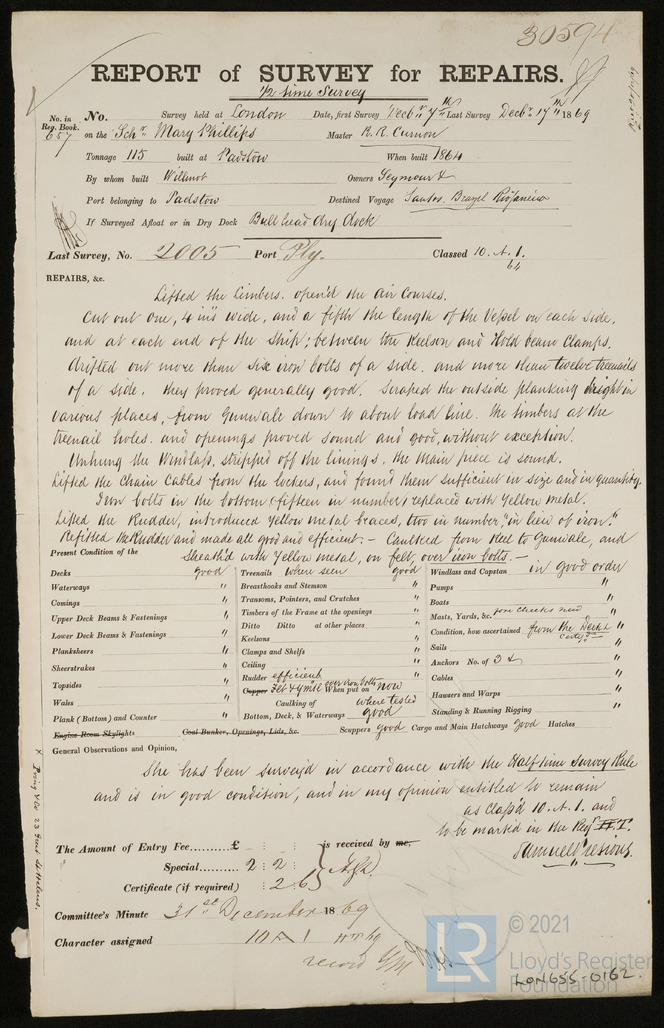 30594
REPORT of SURVEY for REPAIRS.
1/2 time Survey
No. in Reg. Book. No. Survey held at London Date, first Survey Decbr 7th Last Survey Decbr 17th 1869
657 on the Schr Mary Phillips Master R. R. Curnon
Tonnage 115 built at Padstow When built 1864
By whom built Willmot Owners Seymour &
Port belonging to Padstow Destined Voyage Santos, Brazil
If Surveyed Afloat or in Dry Dock Bull head dry dock
Last Survey, No. 2005 Port Ply. Classed 10. A. 1.
64
REPAIRS, &c.
Lifted the Limbers. open'd the Air Courses.
Cut out one, 4 in's wide, and a fifth the length of the Vessel on each side,
and at each end of the Ship; between the Keelson and Hold beam Clamps.
drifted out more than six iron bolts of a side. and more than twelve treenails
of a side. they proved generally good. Scraped the outside planking bright in
various places, from Gunwale down to about load line. the timbers at the
treenail holes. and openings proved sound and good, without exception.
Unhung the Windlass, stripped off the linings, the Main piece is sound.
Lifted the Chain Cables from the lockers, and found them sufficient in size and in quantity.
Iron bolts in the bottom (fifteen in number) replaced with Yellow metal.
Lifted the Rudder, introduced Yellow metal braces, two in number, "in lieu of iron."
Refitted the Rudder and made all good and efficient. – Caulked from Keel to Gunwale, and
Sheath'd with Yellow metal, on felt, over iron bolts. –
Present Condition of the
Decks good
Waterways "
Comings "
Upper Deck Beams & Fastenings "
Lower Deck Beams & Fastenings "
Planksheers "
Sheerstrakes "
Topsides "
Wales "
Plank (Bottom) and Counter "
Engine Room Skylights
Treenails where seen good
Breasthooks and Stemson "
Transoms, Pointers, and Crutches "
Timbers of the Frame at the openings "
Ditto Ditto at other places "
Keelsons "
Clamps and Shelfs "
Ceiling "
Rudder efficient
Copper Felt & ymtl over iron bolts When put on now
Caulking of where tested
Bottom, Deck, & Waterways good
Coal Bunker, Openings, Lids, &c. Scuppers good Cargo and Main Hatchways good Hatches
Windlass and Capstan in good order
Pumps "
Boats "
Masts, Yards, &c. fore cheeks new "
Condition, how ascertained from the Deck &
Sails "
Anchors No. of 3 & "
Cables "
Hawsers and Warps "
Standing & Running Rigging "
General Observations and Opinion,
She has been survey'd in accordance with the Half time Survey Rule
and is in good condition, and in my opinion entitled to remain
as class'd 10. A. 1. and
to be marked in the Reg. H.T.
Samuel Pretious.
The Amount of Entry Fee..........£ : : is received by me,
Special.......... 2 : 2 :
Certificate (if required) : 2 . 6
Committee's Minute 31st December 1869
Character assigned 10 A 1
record
LR
© 2021
Lloyd's Register
Foundation
LON655-0162